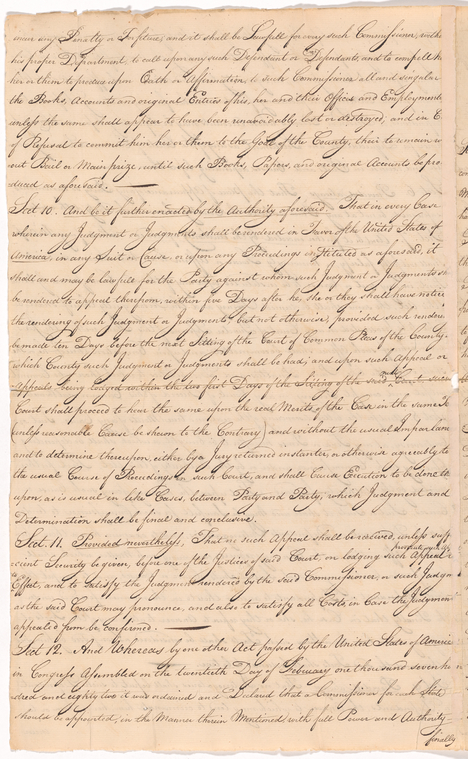 more any Penalty or Forfeiture, and it shall be Lawfull for every such Commissioner, within
his proper Department, to call upon any such Defendant or Defendants, and to compell him
her or them to produce upon Oath or Affirmation, to such Commissioner all and singular
the Books, Accounts and original Entries of his, her and their Offices and Employments
unless the same shall appear to have been unavoidably lost or destroyed, and in C
of Refusal to commit him her or them to the Goal of the County, there to remain w
out Bail or Mainprize, until such Books, Papers, and original Accounts be pro
duced as aforesaid.
Sect 10. And be it further enacted by the Authority aforesaid. That in every Case
wherein any Judgment or Judgments shall be rendered in Favor of the United States of
America, in any Suit or Cause, or upon any Proceedings instituted as aforesaid, it
shall and may be lawful for the Party against whom such Judgment or Judgments sh
be rendered to appeal therefrom, within five Days after he, she or they shall have notice
the rendering of such Judgment or Judgments, but not otherwise; provided such rendere
be made ten Days before the next Sitting of the Court of Common Pleas of the County
which County such Judgment or Judgments shall be had; and upon such Appeal or
Appeals being lodged within the two first Days of the Sitting of the said Court such
Court shall proceed to hear the same upon the real Merits of the Case in the same
(unless reasonable Cause be shown to the Contrary) and without the usual Imparlane
and to determine thereupon, either by a Jury returned instanter, or otherwise agreeably to
the usual Course of Proceedings in such Court, and shall Cause Execution to be done th
upon, as is usual in like Cases, between Party and Party, which Judgment and
Determination shall be final and conclusive.
Sect. 11. Provided nevertheless, That no such Appeal shall be received, unless suff
icient Security be given, before one of the Justices of said Court, on lodging such Appeal
to Effect, and to satisfy the Judgment rendered by the said Commissioner, or such Judgm
as the said Court may pronounce, and also to satisfy all Costs, in Case the Judgment
appealed from be confirmed.
Sect 12. And Whereas by one other Act passed by the United States of Americ
in Congress Assembled on the twentieth Day of February one thousand seven hu
dred and eighty two it was ordained and Declared that a Commissioner for each State
should be appointed, in the Manner therein Mentioned with full Power and Authority
finally